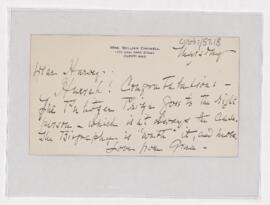 MRS. WILLIAM
Thursday
Dear Harvey:
Hurrah! Congratulations -
The Pulitzer Prize goes to the right
person - which isn't always the case.
The Biography is "worth" it, and more.
Love from